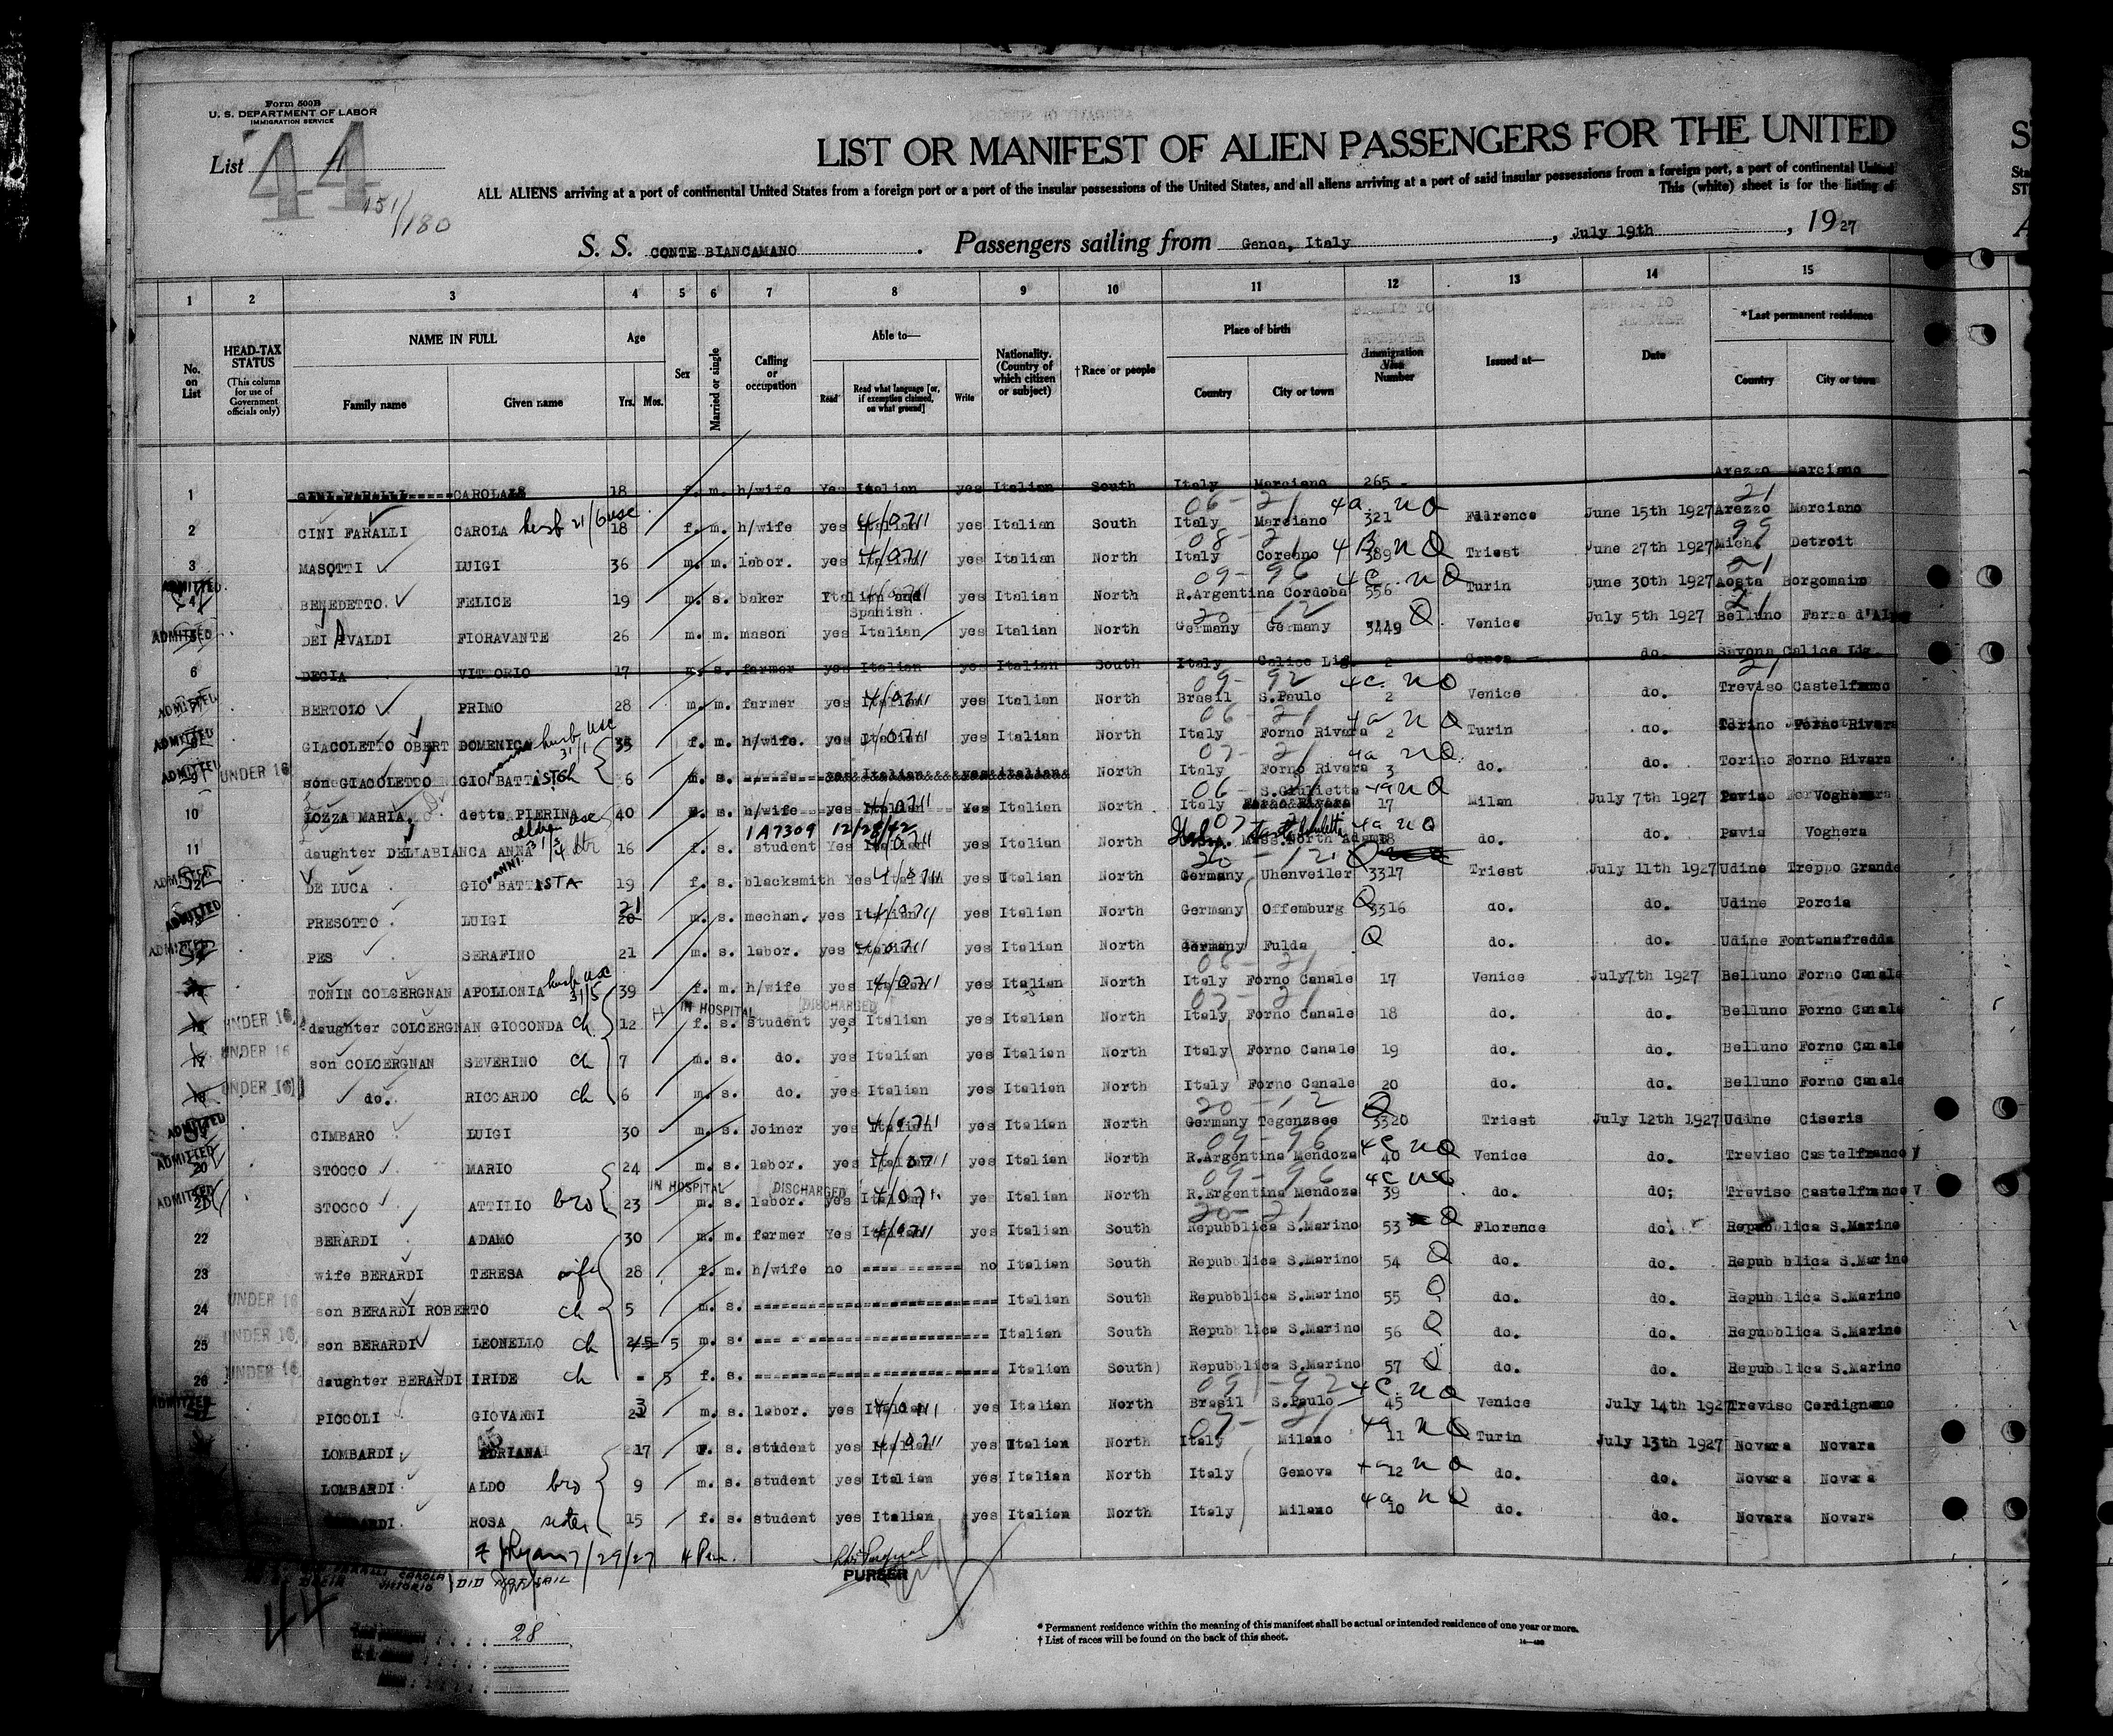 Form 500B
U. S. DEPARTMENT OF LABOR
IMMIGRATION SERVICE
List 44
151/180
LIST OR MANIFEST OF ALIEN PASSENGERS FOR THE UNITED
ALL ALIENS arriving at a port of continental United States from a foreign port or a part of the insular possessions of the United States, and all aliens arriving at a port of said insular possessions from a foreign port, a port of continental United
This (white) sheet is for the listing of
S. S. CONTE BIANCAMANO. Passengers sailing from Genoa, Italy, July 19th, 1927
1 2 3 4 5 6 7 8 9 10 11 12 13 14 15
No. on List
HEAD-TAX STATUS (This column for use of Government officials only)
NAME IN FULL
Family name Given name
Age Yrs. Mos.
Sex
Married or single
Calling or occupation
Able to—
Read Read what language [or, if exemption claimed, on what ground] Write
Nationality. (Country of which citizen or subject)
†Race or people
Place of birth
Country City or town
Immigration Visa Number
Issued at—
Date
*Last permanent residence
Country City or town
1 CINI FARALLI CAROLA 18 f. m. h/wife Yes Italian yes Italian South Italy Marciano 265 Arezzo Marciano
2 CINI FARALLI CAROLA 18 f. m. h/wife yes Italian yes Italian South Italy Marciano 321 4a NQ June 15th 1927 Arezzo Marciano
3 MASOTTI LUIGI 36 m. m. labor. yes Italian yes Italian North Italy 389 NQ Triest June 27th 1927 Mich. Detroit
ADMITTED 4 BENEDETTO FELICE 19 m. s. baker Italian and Spanish yes Italian North R.Argentina Cordoba 556 4c NQ Turin June 30th 1927 Aosta Borgomaino
ADMITTED 5 DEI AVALDI FIORAVANTE 26 m. m. mason yes Italian yes Italian North Germany Germany 3449 Q Venice July 5th 1927 Belluno Farra d'Alpago
6 DECIA VITTORIO 17 m. s. farmer yes Italian yes Italian South Italy Calice Lig. 2 Genoa do. Savona Calice Lig.
ADMITTED 7 BERTOLO PRIMO 28 m. m. farmer yes Italian yes Italian North Brasil S.Paulo 2 4c NQ Venice do. Treviso Castelfranco
ADMITTED 8 GIACOLETTO OBERT DOMENICA husb usc 35 f. m. h/wife. yes Italian yes Italian North Italy Forno Rivara 2 4a NQ Turin do. Torino Forno Rivara
ADMITTED 9 UNDER 16 son GIACOLETTO GIOVANNI BATTISTA ch 6 m. s. North Italy Forno Rivara 3 4a NQ do. do. Torino Forno Rivara
10 IOZZA MARIA detta PIERINA 40 h/wife yes Italian Yes Italian North Italy S.Giulietta 17 NQ Milan July 7th 1927 Pavia Voghera
1A7309 12/28/42
11 daughter DELLABIANCA ANNA 16 f. s. student Yes Italian yes Italian North Mass. North Adams 18 4a NQ do. do. Pavia Voghera
ADMITTED 12 DE LUCA GIOVANNI BATTISTA 19 f. s. blacksmith Yes Italian yes Italian North Germany Uhenveiler 3317 Triest July 11th 1927 Udine Treppo Grande
ADMITTED 13 PRESOTTO LUIGI 21 m. s. mechan. yes Italian yes Italian North Germany Offemburg Q 3316 do. do. Udine Porcia
ADMITTED 14 PES SERAFINO 21 m. s. labor. yes Italian yes Italian North Germany Fulda Q do. do. Udine Fontanafredda
15 TONIN COLCERGNAN APOLLONIA husb usc 31/5 39 f. m. h/wife yes Italian yes Italian North Italy Forno Canale 17 Venice July7th 1927 Belluno Forno Canale
IN HOSPITAL DISCHARGED
16 UNDER 16. daughter COLCERGNAN GIOCONDA ch 12 f. s. student yes Italian yes Italian North Italy Forno Canale 18 do. do. Belluno Forno Canale
17 UNDER 16 son COLCERGNAN SEVERINO ch 7 m. s. do. yes Italian yes Italian North Italy Forno Canale 19 do. do. Belluno Forno Canale
18 UNDER 16 do. RICCARDO ch 6 m. s. do. yes Italian yes Italian North Italy Forno Canale 20 do. do. Belluno Forno Canale
ADMITTED 19 CIMBARO LUIGI 30 m. s. Joiner yes Italian yes Italian North Germany Tegenzsee Q 3320 Triest July 12th 1927 Udine Ciseris
ADMITTED 20 STOCCO MARIO 24 m. s. labor. yes Italian yes Italian North R.Argentina Mendoza 40 4c NQ Venice do. Treviso Castelfranco V
IN HOSPITAL DISCHARGED
ADMITTED 21 STOCCO ATTILIO bro 23 m. s. labor. yes Italian yes Italian North R.Ergentina Mendoza 39 do. do; Treviso Castelfranco V
22 BERARDI ADAMO 30 m. m. farmer Yes Italian yes Italian South Repubblica S.Marino 53 Q Florence do. Repubblica S.Marino
23 wife BERARDI TERESA wife 28 f. m. h/wife no no Italian South Repubblica S.Marino 54 Q do. do. Repubblica S.Marino
24 UNDER 16 son BERARDI ROBERTO ch 5 m. s. Italian South Repubblica S.Marino 55 Q do. do. Repubblica S.Marino
25 UNDER 16. son BERARDI LEONELLO ch 2/5 5 m. s. Italian South Repubblica S.Marino 56 Q do. do. Repubblica S.Marino
26 UNDER 16 daughter BERARDI IRIDE ch - 5 f. s. Italian South Repubblica S.Marino 57 Q do. do. Repubblica S.Marino
ADMITTED 27 PICCOLI GIOVANNI m. s. labor. yes Italian yes Italian North Brasil S.Paulo 45 4c NQ Venice July 14th 1927 Treviso Cordignano
LOMBARDI ADRIANA 17 s. student yes Italian yes Italian North Italy Milano 11 4a NQ Turin July 13th 1927 Novara Novara
LOMBARDI ALDO bro 9 m. s. student yes Italian yes Italian North Italy Genova 12 NQ do. do. Novara Novara
LOMBARDI ROSA sister 15 f. s. student yes Italian yes Italian North Italy Milano 10 4a NQ do. do. Novara Novara
7/29/27
PURSER
FARALLI CAROLA
DECIA VITTORIO } DID NOT SAIL
44
28
* Permanent residence within the meaning of this manifest shall be actual or intended residence of one year or more.
† List of races will be found on the back of this sheet.